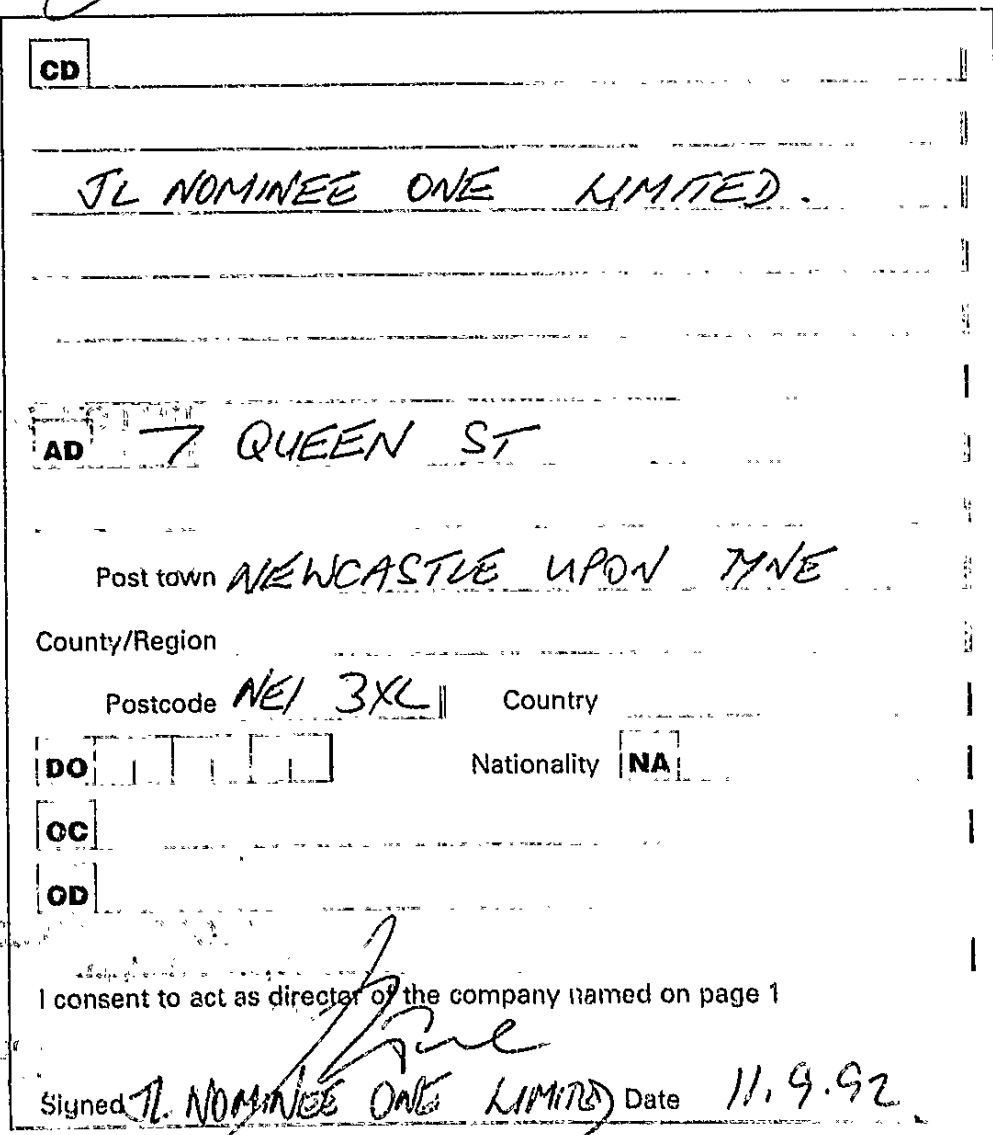 CD
JL NOMINEE ONE LIMITED.
AD 7 QUEEN ST
Post town NEWCASTLE UPON TYNE
County/Region
Postcode NE1 3XL Country
DO Nationality NA
OC
OD
I consent to act as director of the company named on page 1
Signed JL NOMINEE ONE LIMITED Date 11.9.92